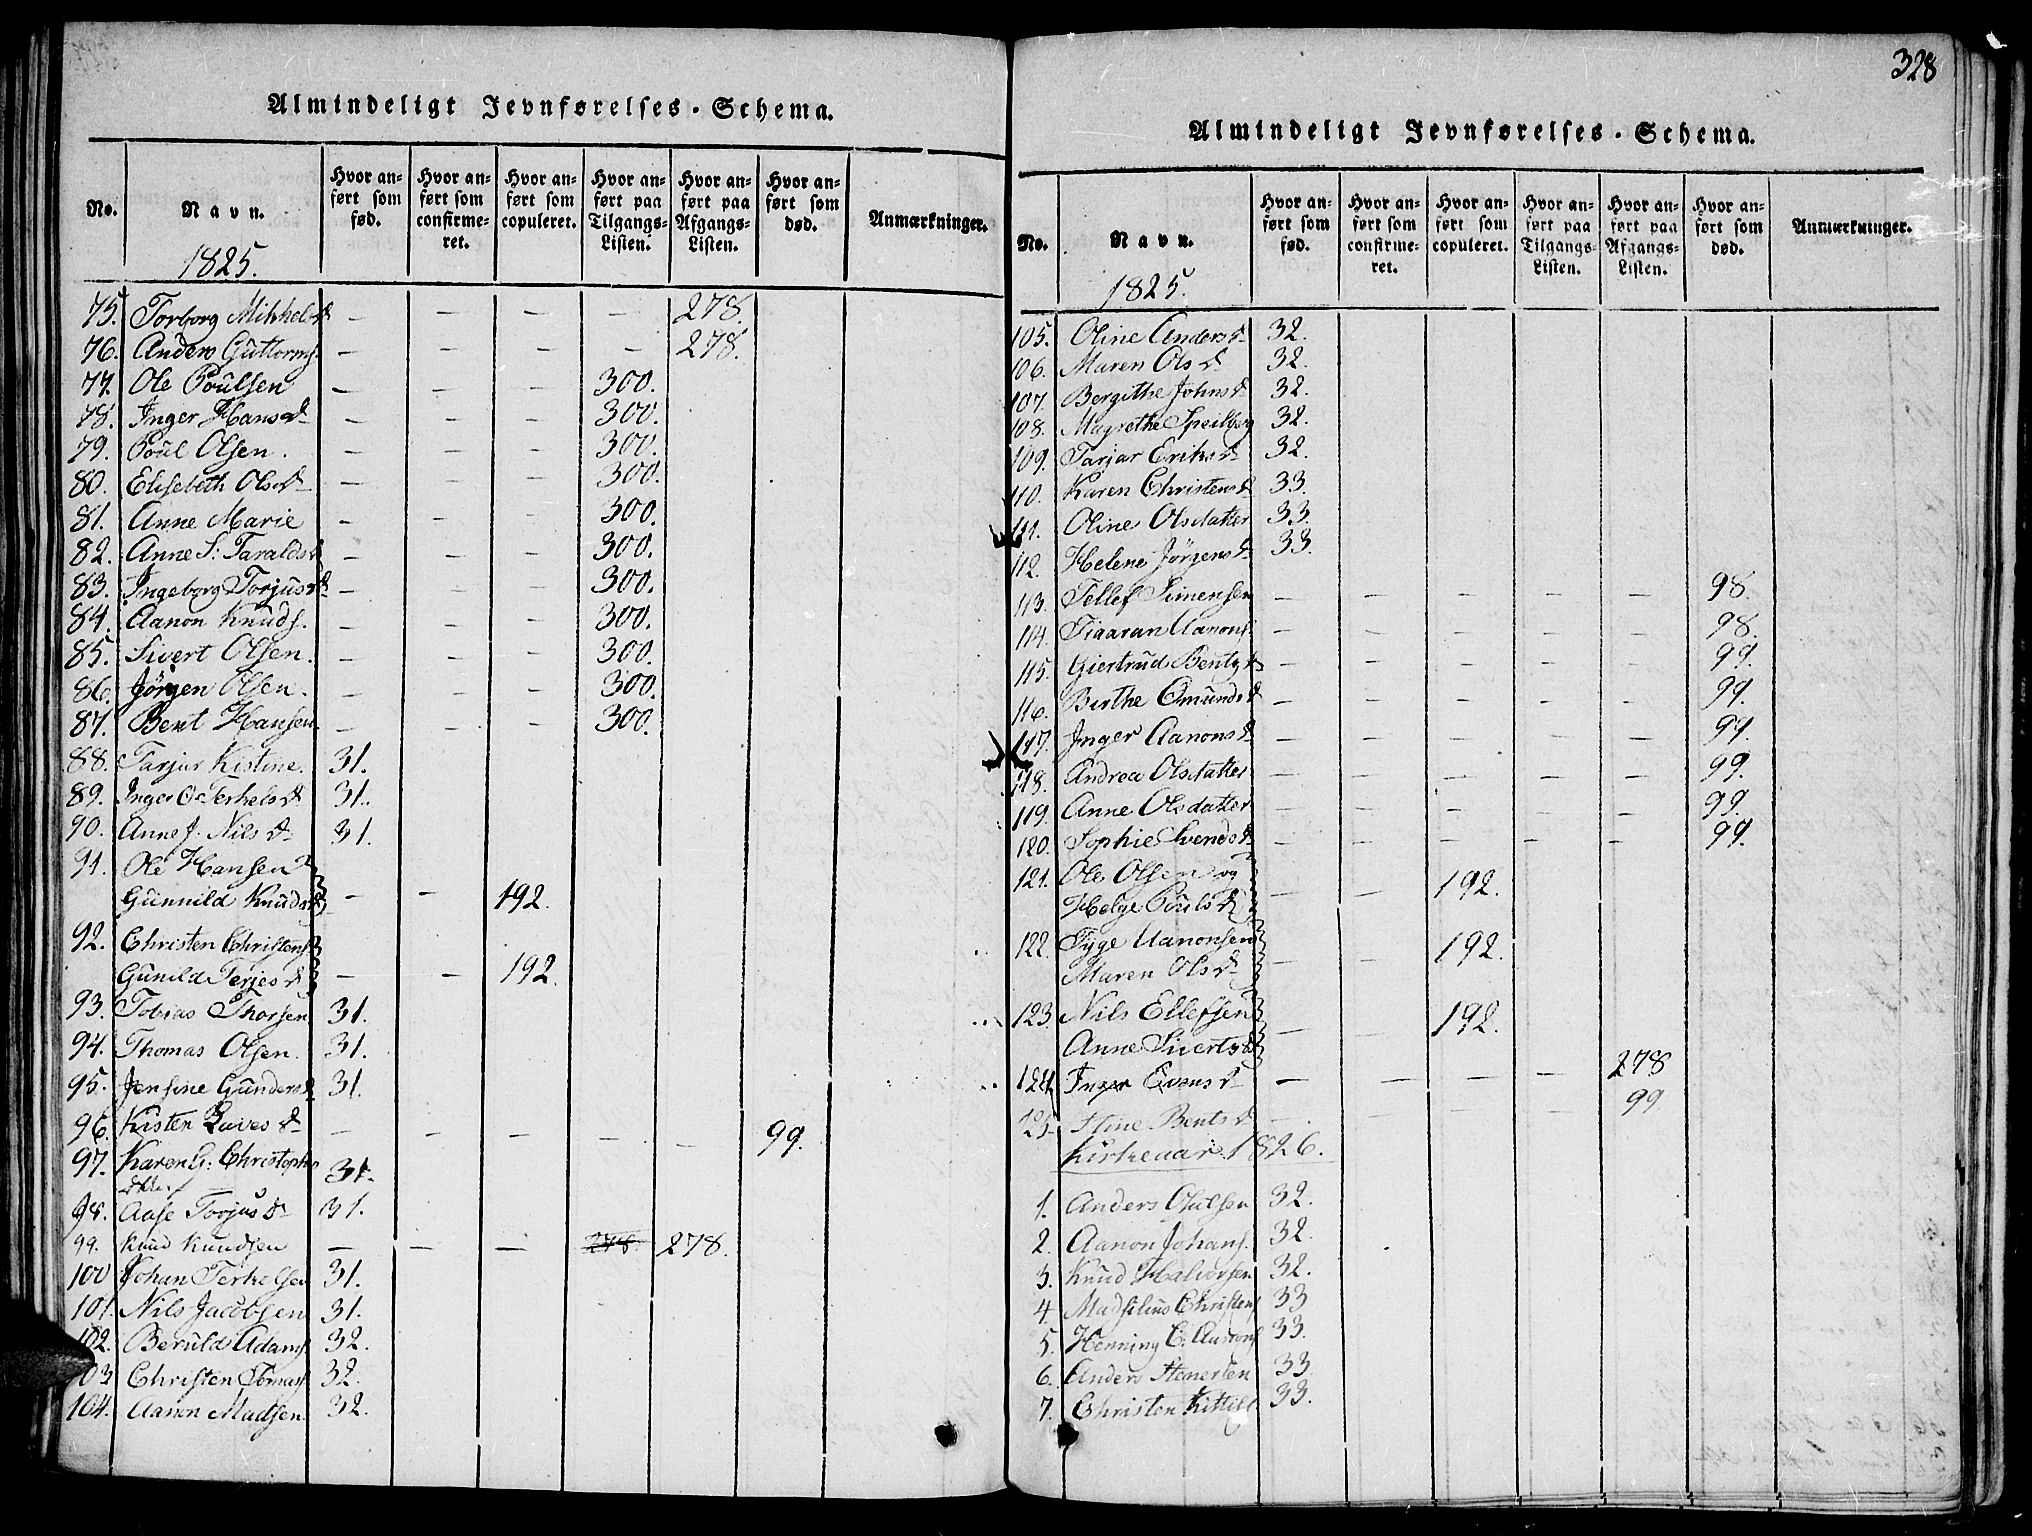 Almindeligt Jevnførelses-Schema.
No. | Navn. | Hvor anført som fød. | Hvor anført som confirmeret. | Hvor anført som copuleret. | Hvor anført paa Tilgangs-Listen. | Hvor anført paa Afgangs-Listen. | Hvor anført som død. | Anmærkninger.
1825.
75. Torborg Mikkelsd — — — — 278.
76. Anders Guttorms. — — — — 278.
77. Ole Poulsen — — — 300.
78. Inger Hansd — — — 300.
79. Poul Olsen. — — — 300.
80. Elisebeth Olsd — — — 300.
81. Anne Marie — — — 300.
82. Anne S: Taraldsd — — — 300.
83. Ingeborg Torjusd — — — 300.
84. Aanon Knuds. — — — 300.
85. Sivert Olsen. — — — 300.
86. Jörgen Olsen. — — — 300.
87. Bent Hansen — — — 300.
88. Tarjer Kistine. 31.
89. Inger O. Terkelsd 31.
90. Anne J. Nilsd 31.
91. Ole Hansen
Gunnild Knudsd — — 192.
92. Christen Christens.
Gunild Terjesd — — 192.
93. Tobias Thorsen 31.
94. Thomas Olsen. 31.
95. Jensine Gundersd 31.
96. Kisten Lavesd — — — — — 99.
97. Karen G: Christophersdtter 31.
98. Aase Torjusd 31.
99. Knud Knudsen — — — 278. 278.
100 Johan Terkelsen 31.
101. Nils Jacobsen 31.
102. Beruld Adams. 32.
103 Christen Tomass. 32.
104. Aanon Madsen 32.
328
Almindeligt Jevnførelses-Schema.
No. | Navn. | Hvor anført som fød. | Hvor anført som confirmeret. | Hvor anført som copuleret. | Hvor anført paa Tilgangs-Listen. | Hvor anført paa Afgangs-Listen. | Hvor anført som død. | Anmærkninger.
1825.
105. Oline Andersd 32.
106. Maren Olsd 32.
107. Bergithe Johnsd 32.
108. Magrethe Speilberg 32.
109. Tarjer Eriksd 32.
110. Karen Christensd 33.
111. Oline Olsdatter 33.
112. Helene Jörgensd 33.
113. Tellef Simensen — — — — — 98.
114. Tiaaran Aanons. — — — — — 98.
115. Giertrud Bentsd — — — — — 99.
116. Birthe Omundsd — — — — — 99.
117. Inger Aanonsd — — — — — 99.
118. Andrea Olsdatter — — — — — 99.
119. Anne Olsdatter — — — — — 99.
120. Sophie Svendsd — — — — — 99.
121. Ole Olsen og
Helge Poulsd — — 192.
122. Tyge Aanonsen
Maren Olsd — — 192.
123. Nils Ellefsen
Anne Sivertsd — — 192.
124. Inger Evensd — — — — 278
125 Stine Bentsd — — — — 99
Kirkeaar 1826.
1. Anders Osulsen 32.
2. Aanon Johans. 32.
3. Knud Halvorsen 32.
4 Madsilius Christens 33
5. Henning C. Aanons 33.
6. Anders Stenersen 33
7. Christen Kittill 33.